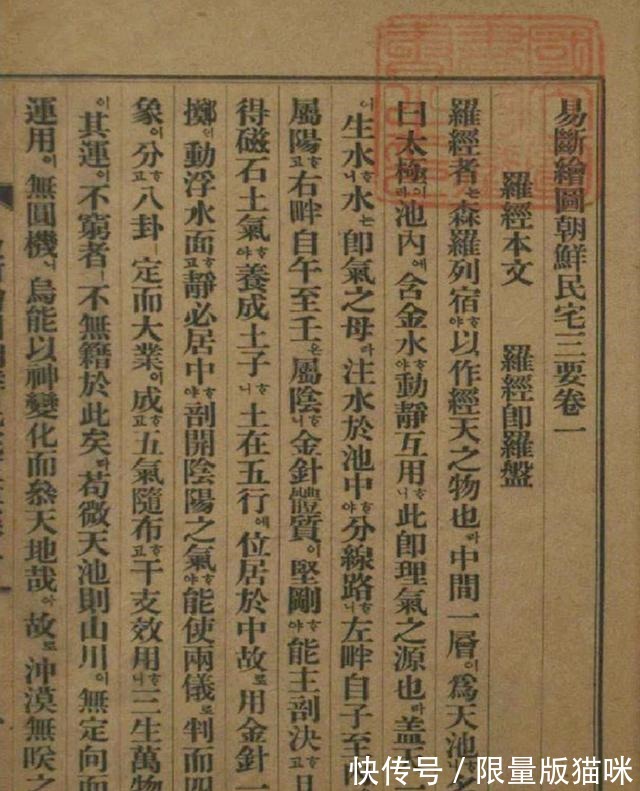 易斷繪圖朝鮮民宅三要卷一
羅經本文 羅經卽羅盤
羅經者는森羅列宿ᄒᆞ야以作經天之物也라中間一層이爲天池
曰太極이라池內에含金水ᄒᆞ야動靜互用ᄒᆞ니此卽理氣之源也라盖天一
이生水ᄒᆞ니水는卽氣之母라注水於池中ᄒᆞ야分線路ᄒᆞ니左畔自子至
屬陽ᄒᆞ고右畔自午至壬은屬陰ᄒᆞ니金針體質이堅剛ᄒᆞ야能主剖決ᄒᆞ고且
得磁石土氣ᄒᆞ야養成土子ᄒᆞ니土在五行에位居於中故로用金針一
擲인動浮水面ᄒᆞ고靜必居中ᄒᆞ야剖開陰陽之氣ᄒᆞ야能使兩儀로判而四
象이分ᄒᆞ고八卦ㅣ定而大業이成ᄒᆞ고五氣隨布ᄒᆞ고干支效用ᄒᆞ니三生萬物
이其運이不窮者ㅣ不無籍於此矣라苟微天池則山川이無定向而
運用이無圓機니烏能以神變化而叅天地哉아故로沖漠無朕之
快传号/限量版猫咪